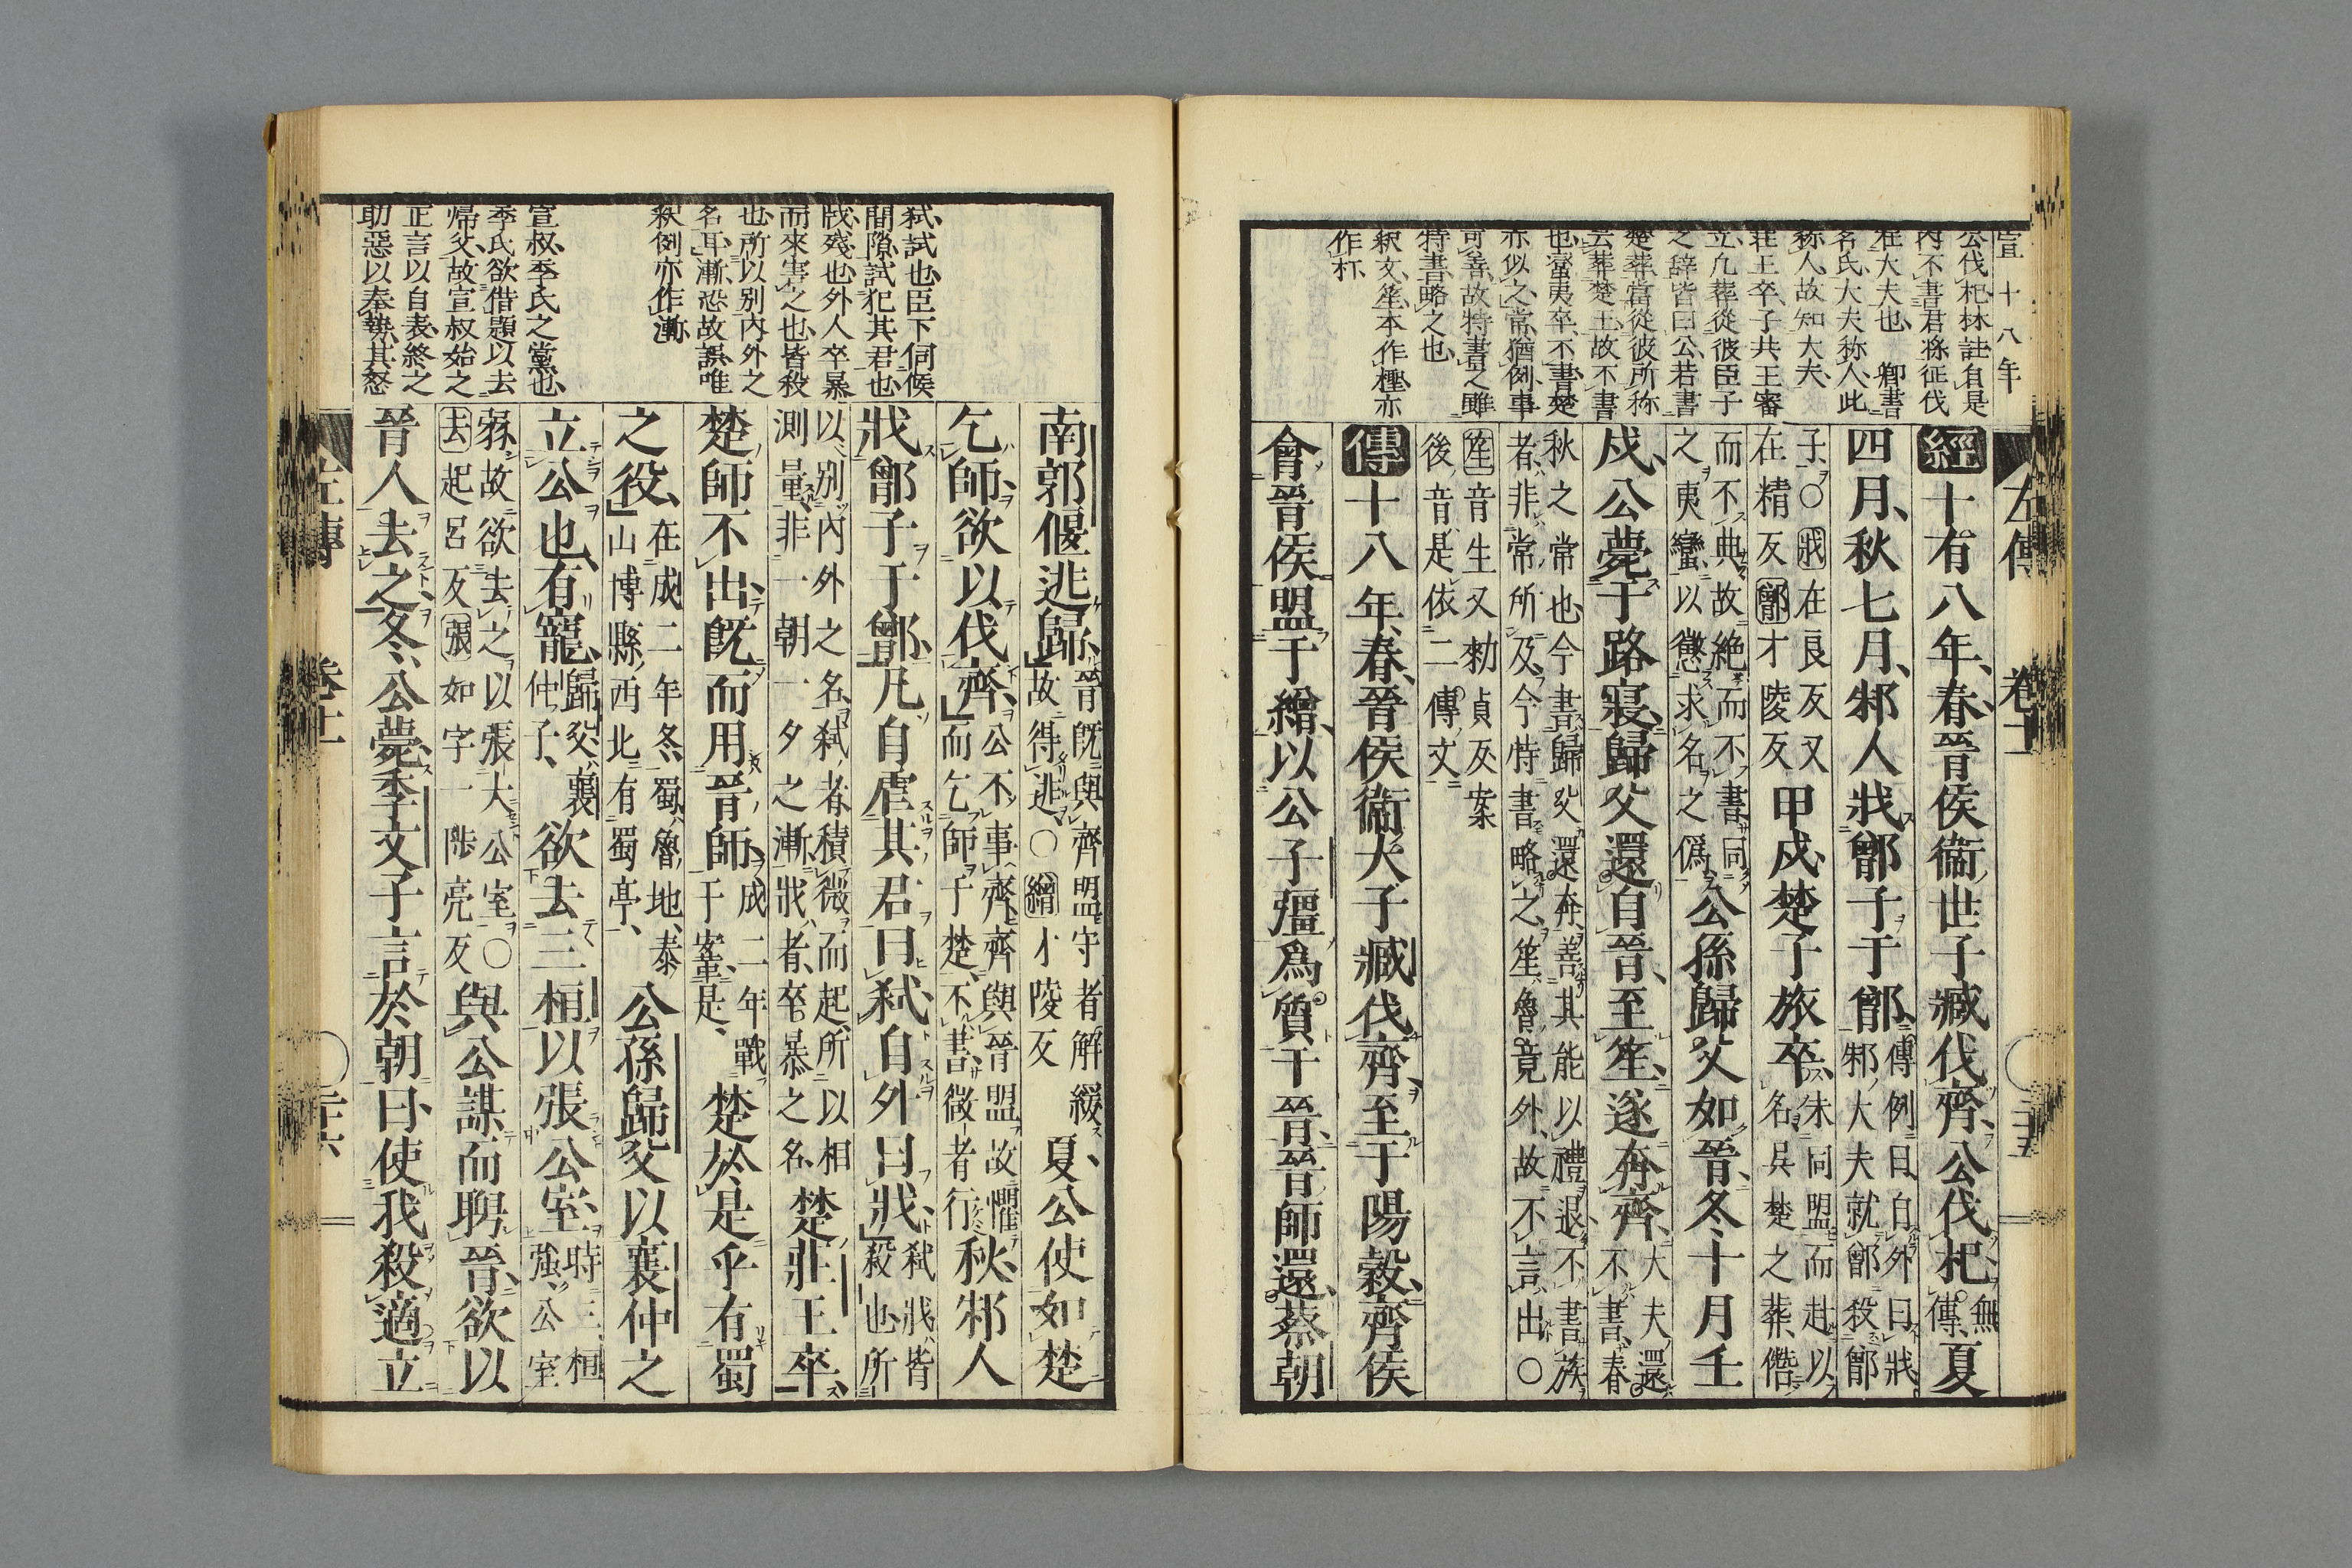 宣十八年
公伐杞林註自是
內不書君將征伐
在大夫也 卿書
名氏大夫称人此
称人故知大夫
莊王卒子共王審
立凡葬從彼臣子
之辞皆曰公若書
楚葬當從彼所称
云葬楚王故不書
也蛮夷卒不書楚
亦似之常猶例事
可善故特書之雖
特書略之也
釈文笙本作檉亦
作朾
左傳 卷十一 二十五
經十有八年春晉侯衞世子臧伐齊公伐杞無傳夏
四月秋七月邾人戕鄫子于鄫傳例曰自外曰戕邾大夫就鄫殺鄫
子○戕在良反又在精反鄫才陵反甲戌楚子旅卒未同盟而赴以名吳楚之葬僭
而不典故絶而不書同之夷蠻以懲求名之僞公孫歸父如晉冬十月壬
戌公薨于路寢歸父還自晉至笙遂奔齊大夫還不書春
秋之常也今書歸父還奔善其能以禮退不書族者非常所及今特書略之笙魯竟外故不言出○
笙音生又勑貞反案後音是依二傳文
傳十八年春晉侯衞大子臧伐齊至于陽穀齊侯
會晉侯盟于繒以公子彊爲質于晉晉師還蔡朝
弑試也臣下伺候
間隙試犯其君也
戕殘也外人卒暴
而來害之也皆殺
也所以别內外之
名耳漸恐故誤唯
釈例亦作漸
宣叔季氏之黨也
季氏欲借題以去
帰父故宣叔始之
正言以自表終之
助惡以奉執其怒
南郭偃逃歸晉旣與齊盟守者解緩故得逃○繒才陵反夏公使如楚
乞師欲以伐齊公不事齊齊與晉盟故懼而乞師于楚不書微者行秋邾人
戕鄫子于鄫凡自虐其君曰弑自外曰戕弑戕皆殺也所
以别內外之名弑者積微而起所以相測量非一朝一夕之漸戕者卒暴之名楚莊王卒
楚師不出旣而用晉師成二年戰于鞌是楚於是乎有蜀
之役在成二年冬蜀魯地泰山博縣西北有蜀亭公孫歸父以襄仲之
立公也有寵歸父襄仲子欲去三桓以張公室時三桓強公室
弱故欲去之以張大公室○去起呂反張如字一陟亮反與公謀而聘晉欲以
晉人去之冬公薨季文子言於朝曰使我殺適立
左傳 卷十一 二十六